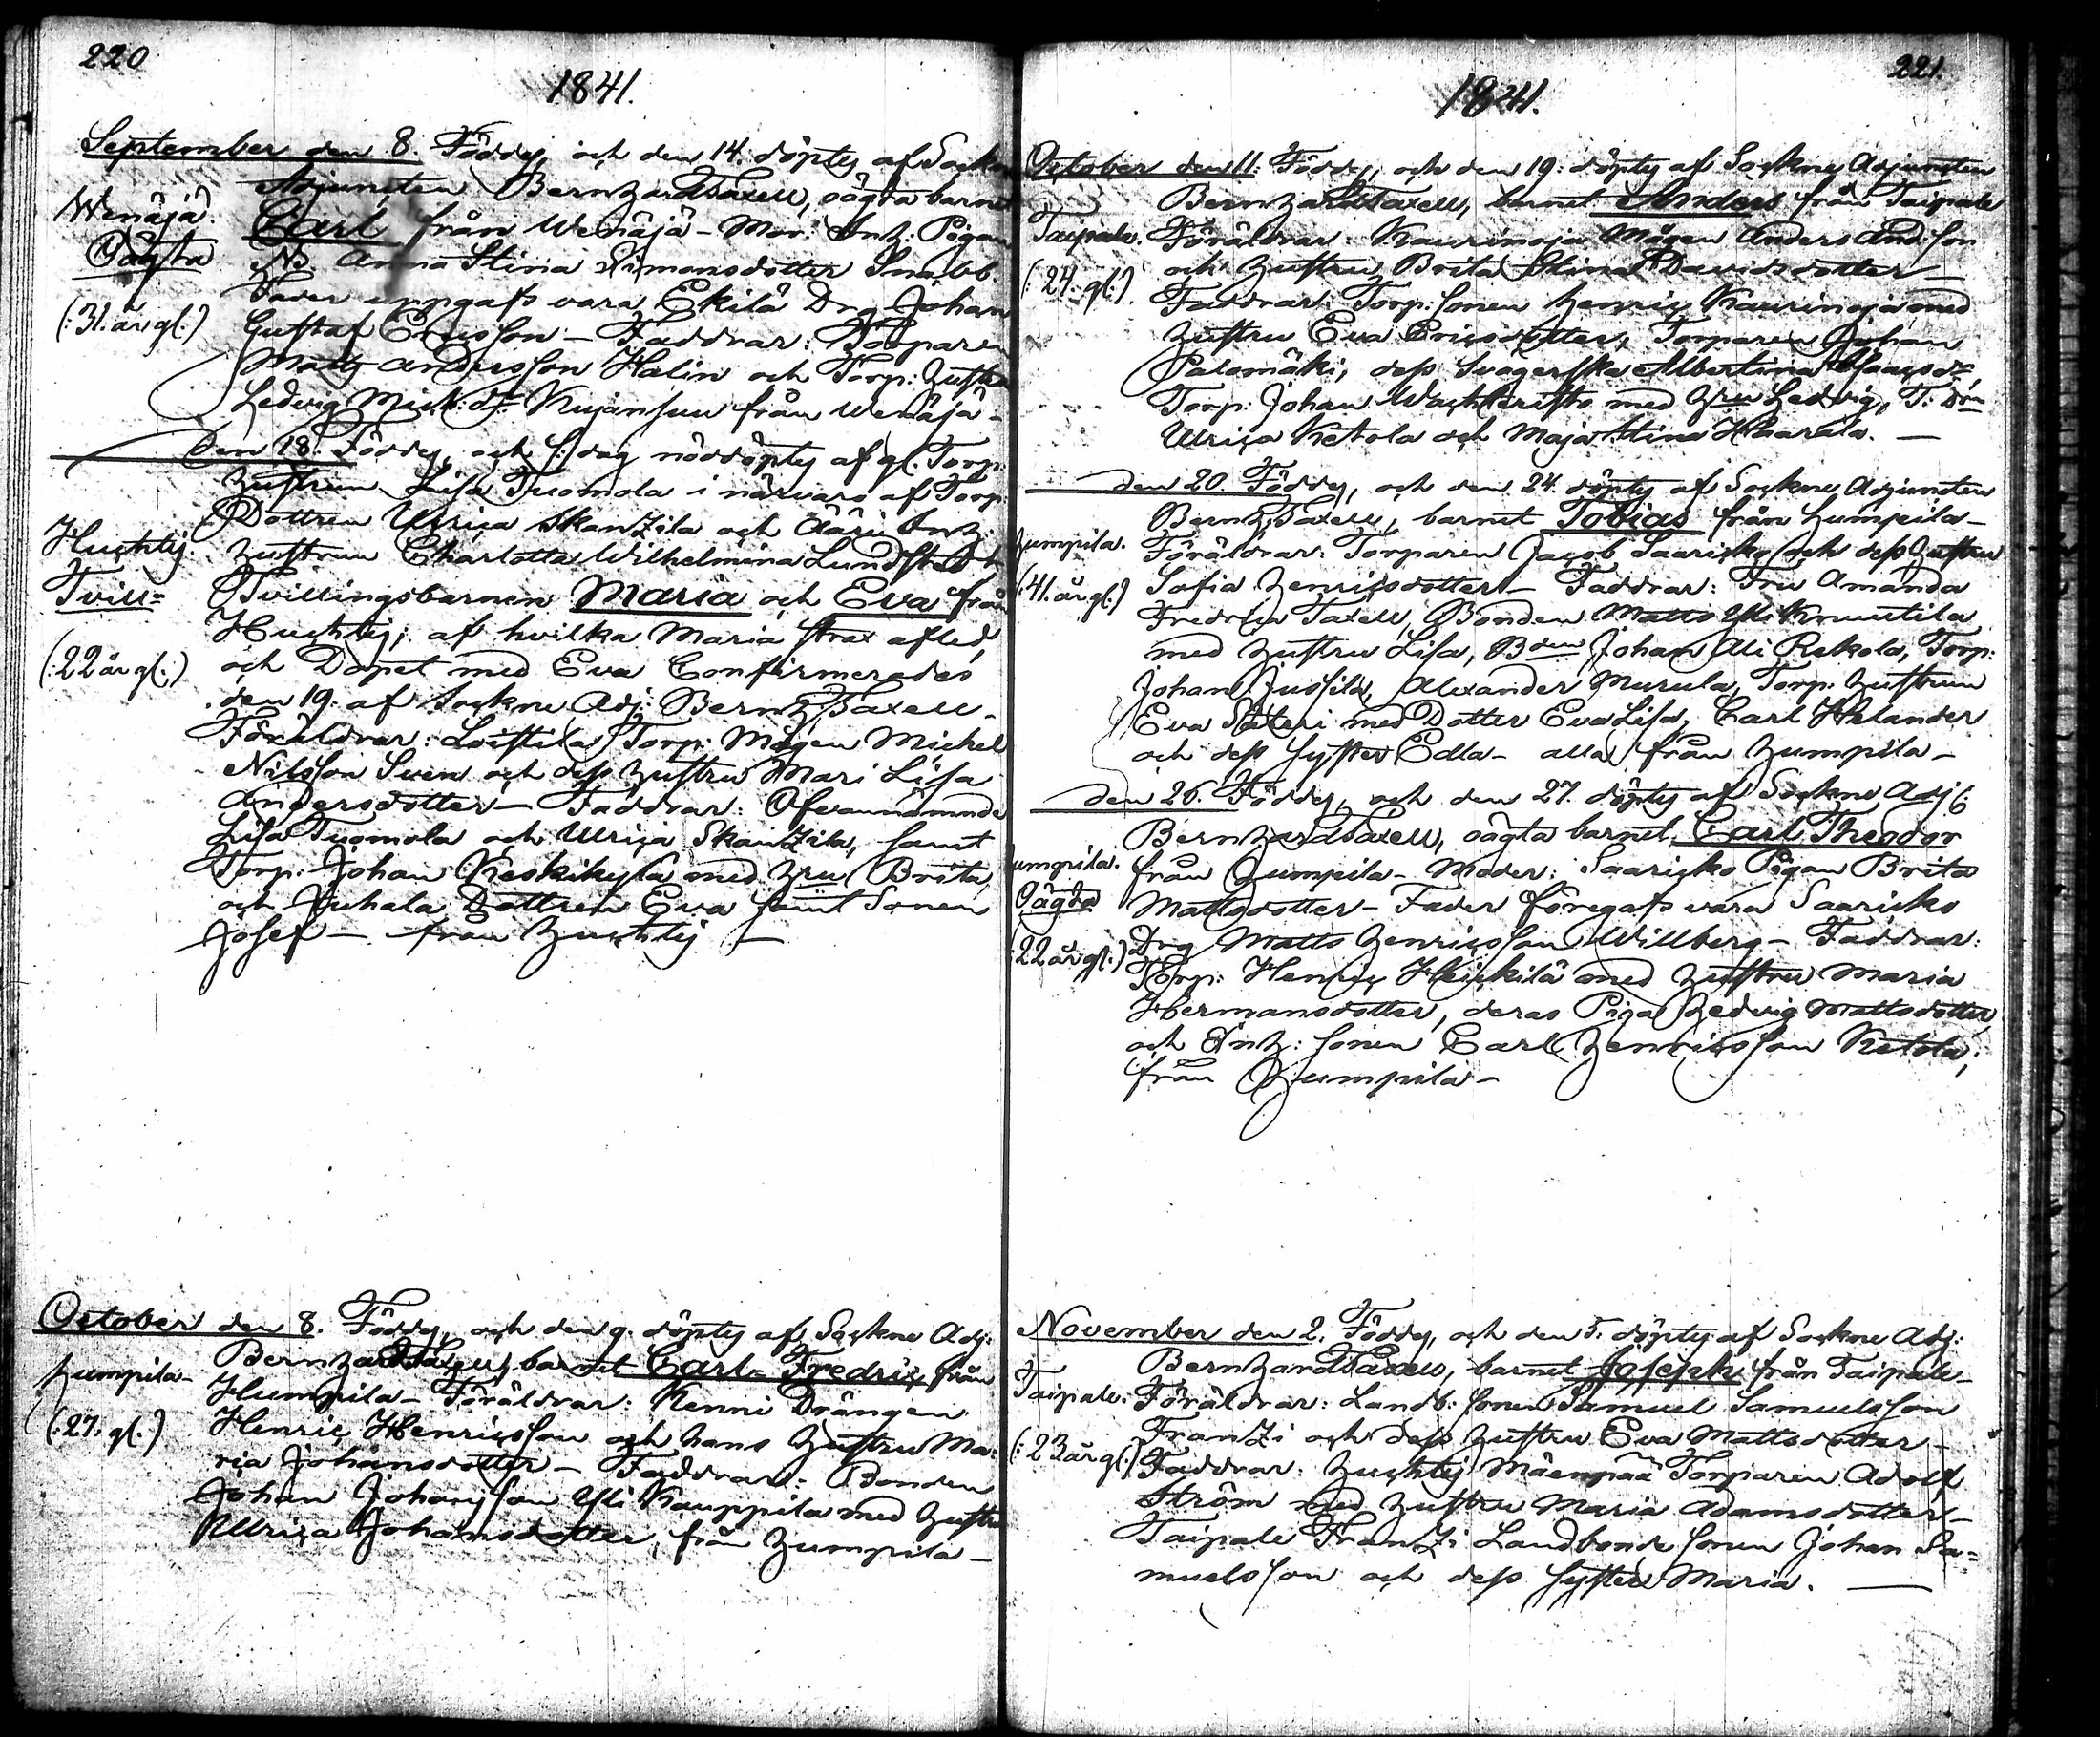 220
1841.
September den 8. Föddes och den 14. döptes af Sockne
Adjuncten Bernhard Taxell, oägta barnet
Wenäjä. Carl från Wenäjä - Mor: Inh: Pigan
Oägta No. Anna Stina Simonsdotter Snabb.
Fader uppgafs vara Ekilä Drg Johan
(:31. år gl:) Gustaf Ericsson - Faddrar: Torparen
Matts Andersson Halin och Torp: hustru
Hedvig Mich: dr Kujansuu från Wenäjä -
Den 18. Föddes, och s: dag nöddöptes af gl. Torp:
hustrun Lisa Tuomola i närvaro af Torp
Dottren Ulrica Skanzila och Ääri Inh:
Huchtis. hustrun Charlotta Wilhelmina Lundstedt
Tvill= Tvillingsbarnen Maria och Eva från
Huchtis; af hvilka Maria strax afled,
(:22 år gl:) och Dopet med Eva Confirmerades
den 19. af Sockne Adj: Bernh. Taxell -
Föräldrar: Loistila Torp: Mågen Michel
Nilsson Sven och dess hustru Mari Lisa
Andersdotter - Faddrar: Ofvannämnde
Lisa Tuomola och Ulrica Skanzila, samt
Torp: Johan Keskikylä med hru Brita,
och Juhala Dottren Eva samt Sonen
Josef - från huchtis -
October den 8. Föddes, och den 9. döptes af Sockne Adj:
Bernhard Taxell, barnet Carl Fredric från
humpila - Humpila - Föräldrar: Kenni Drängen
(:27: gl:) Henric Henricsson och hans hustru Ma=
ria Johansdotter - Faddrar: Bonden
Johan Johansson Yli Kauppila med hustru
Ulrica Johansdotter, från humpila -
221.
1841.
October den 11: Föddes, och den 19: döptes af Sockne Adjuncten
Bernhard Taxell, barnet Anders från Taipale
Taipale. Föräldrar: Kaurinoja Mågen Anders And:son
och hustru Brita Stina Davidsdotter -
(:24: gl:) Faddrar: Torp: sonen henric Kaurinoja med
hustru Eva Ericsdotter, Torparen Johan
Palomäki, dess Svägerska Albertina Isaacs dr,
Torp: Johan Wachteristo med hru Hedvig, T: Drn
Ulrica Ketola och Maja Stina Haarala. -
den 20. Föddes, och den 24. döptes af Sockne Adjuncten
Bernh. Taxell, barnet Tobias från humpila -
humpila. Föräldrar: Torparen Jacob Saaricko och dess hustru
(:41. år gl:) Sofia henricsdotter - Faddrar: Fru Amanda
Fredrica Taxell, Bonden Matts Yli Knuutila
med hustru Lisa, Bden Johan Ali Rekola, Torp:
Johan Jussila, Alexander Murula, Torp: hustrun
Eva Säteri med Dotter Eva Lisa, Carl Helander
och dess syster Edla - alla från humpila -
den 26. Föddes, och den 27. döptes af Sockne Adj:
Bernhard Taxell, oägta barnet Carl Theodor
humpila. från humpila - Moder: Saaricko Pigan Brita
Oägta Mattsdotter - Fader föregafs vara Saaricko
(:22 år gl:) Drg Matts henricsson Willberg - Faddrar:
Torp: Henric Heickilä med hustru Maria
Hermansdotter, deras Piga Hedvig Mattsdotter,
och Inh: sonen Carl henricsson Ketola,
från humpila -
November den 2. Föddes, och den 5. döptes af Sockne Adj:
Bernhard Taxell, barnet Joseph från Taipale -
Taipale: Föräldrar: Landb: sonen Samuel Samuelsson
Franzi och dess hustru Eva Mattsdotter -
(:23 år gl:) Faddrar: huchtis Mäenpää Torparen Adolf
Ström med hustru Maria Adamsdotter -
Taipale Franzi Landbonde sonen Johan Sa=
muelsson och dess syster Maria. -